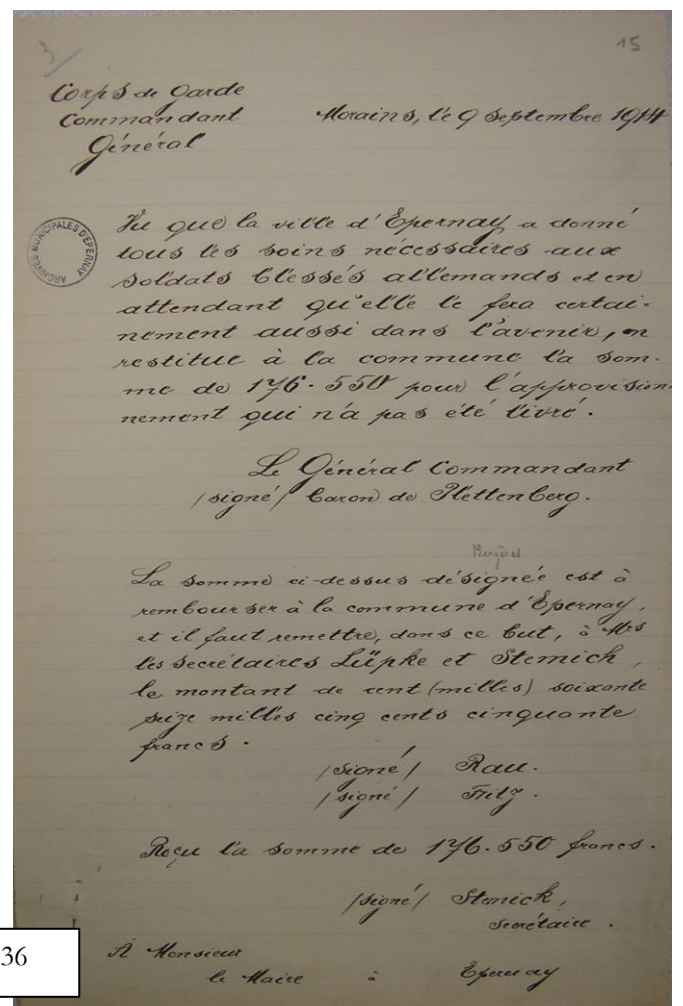 3/
15
Corps de Garde
Commandant
Général
Morains, le 9 Septembre 1914
ARCHIVES MUNICIPALES D'EPERNAY
Vu que la ville d'Epernay a donné
tous les soins nécessaires aux
soldats blessés allemands et en
attendant qu'elle le fera certai-
nement aussi dans l'avenir, on
restitue à la commune la som-
me de 176.550 pour l'approvision
nement qui n'a pas été livré.
Le Général Commandant
/signé/ baron de Plettenberg.
Bergères
La somme ci-dessus désignée est à
rembourser à la commune d'Epernay,
et il faut remettre, dans ce but, à Mrs
les secrétaires Lüpke et Stemick,
le montant de cent (milles) soixante
seize milles cinq cents cinquante
francs.
/signé/ Rau.
/signé/ Fritz.
Reçu la somme de 176.550 francs.
/signé/ Stemick,
secrétaire.
36
A Monsieur
le Maire à Epernay